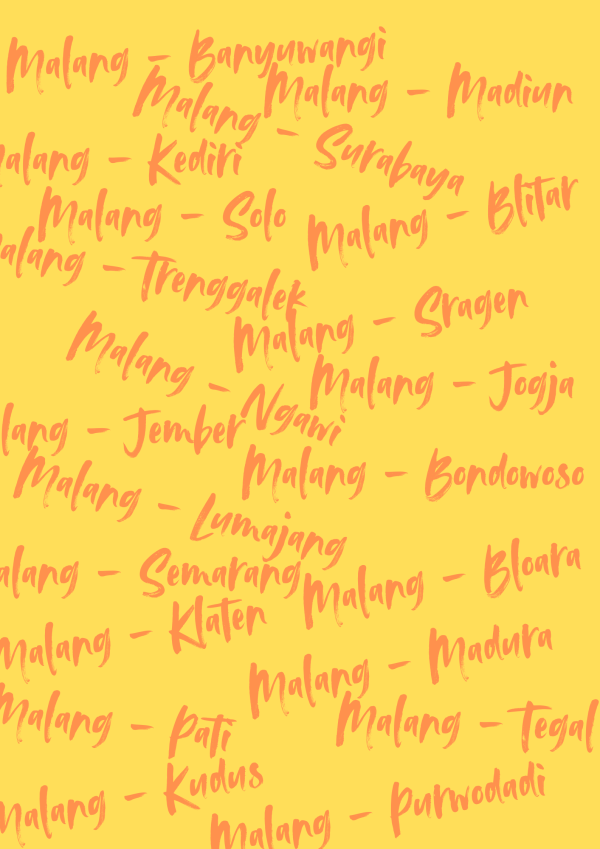 Malang - Banyuwangi
Malang - Madiun
Malang - Surabaya
Malang - Kediri
Malang - Blitar
Malang - Solo
Malang - Trenggalek
Malang - Sragen
Malang - Ngawi
Malang - Jogja
lang - Jember
Malang - Bondowoso
Malang - Lumajang
alang - Semarang
Malang - Bloara
Malang - Klaten
Malang - Madura
Malang - Pati
Malang - Tegal
Malang - Kudus
Malang - Purwodadi